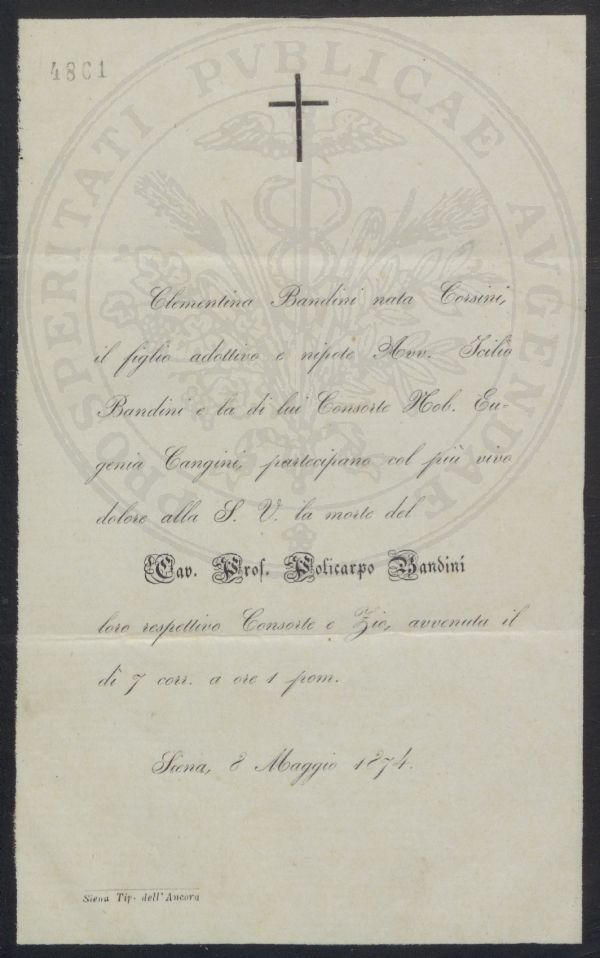 4861
PROSPERITATI PVBLICAE AVGENDAE
Clementina Bandini nata Corsini,
il figlio adottivo e nipote Avv. Icilio
Bandini e la di lui Consorte Nob. Eu=
genia Cangini, partecipano col più vivo
dolore alla S. V. la morte del
Cav. Prof. Policarpo Bandini
loro respettivo Consorte e Zio, avvenuta il
dì 7 corr. a ore 1 pom.
Siena, 8 Maggio 1874.
Siena Tip. dell'Ancora